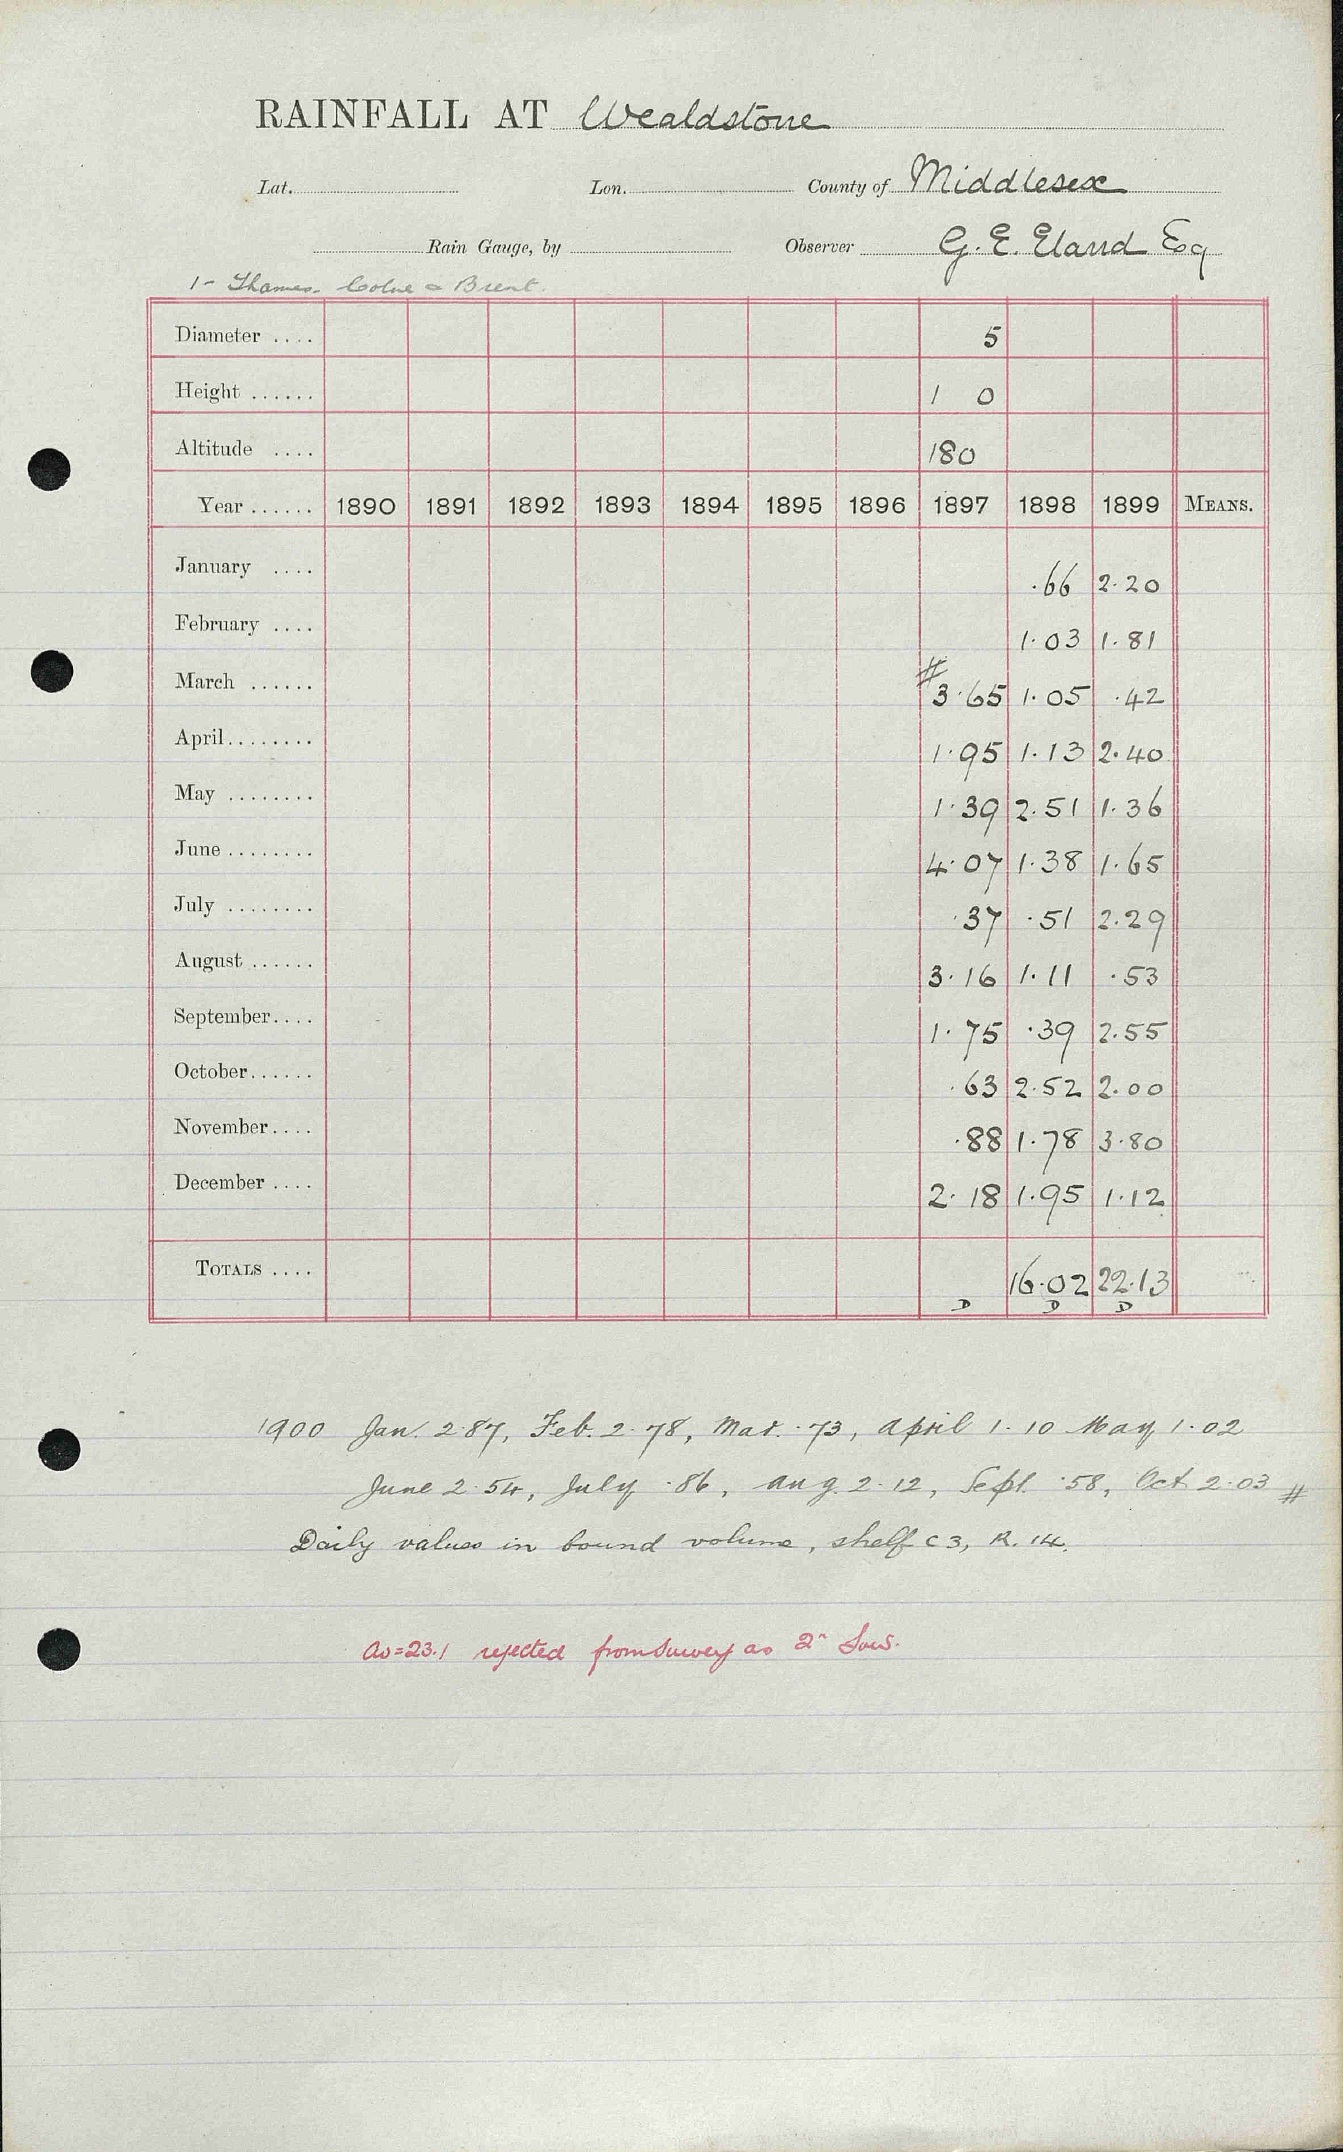 RAINFALL AT Wealdstone
Lat. Lon. County of Middlesex
Rain Gauge, by Observer G. E. Eland Esq
1- Thames. Colne & Brent.
Diameter .... 5
Height ...... 1 0
Altitude .... 180
Year ...... 1890 1891 1892 1893 1894 1895 1896 1897 1898 1899 MEANS.
January .... .66 2.20
February .... 1.03 1.81
March ...... # 3.65 1.05 .42
April........ 1.95 1.13 2.40
May ........ 1.39 2.51 1.36
June ........ 4.07 1.38 1.65
July ........ .37 .51 2.29
August ...... 3.16 1.11 .53
September.... 1.75 .39 2.55
October...... .63 2.52 2.00
November.... .88 1.78 3.80
December .... 2.18 1.95 1.12
TOTALS .... 16.02 22.13
D D D
1900 Jan. 2.87, Feb. 2.78, Mar. .73, April 1.10 May 1.02
June 2.54, July .86, Aug. 2.12, Sept. .58, Oct 2.03 #
Daily values in bound volume, shelf C3, R. 14.
Av=23.1 rejected from Survey as 2n